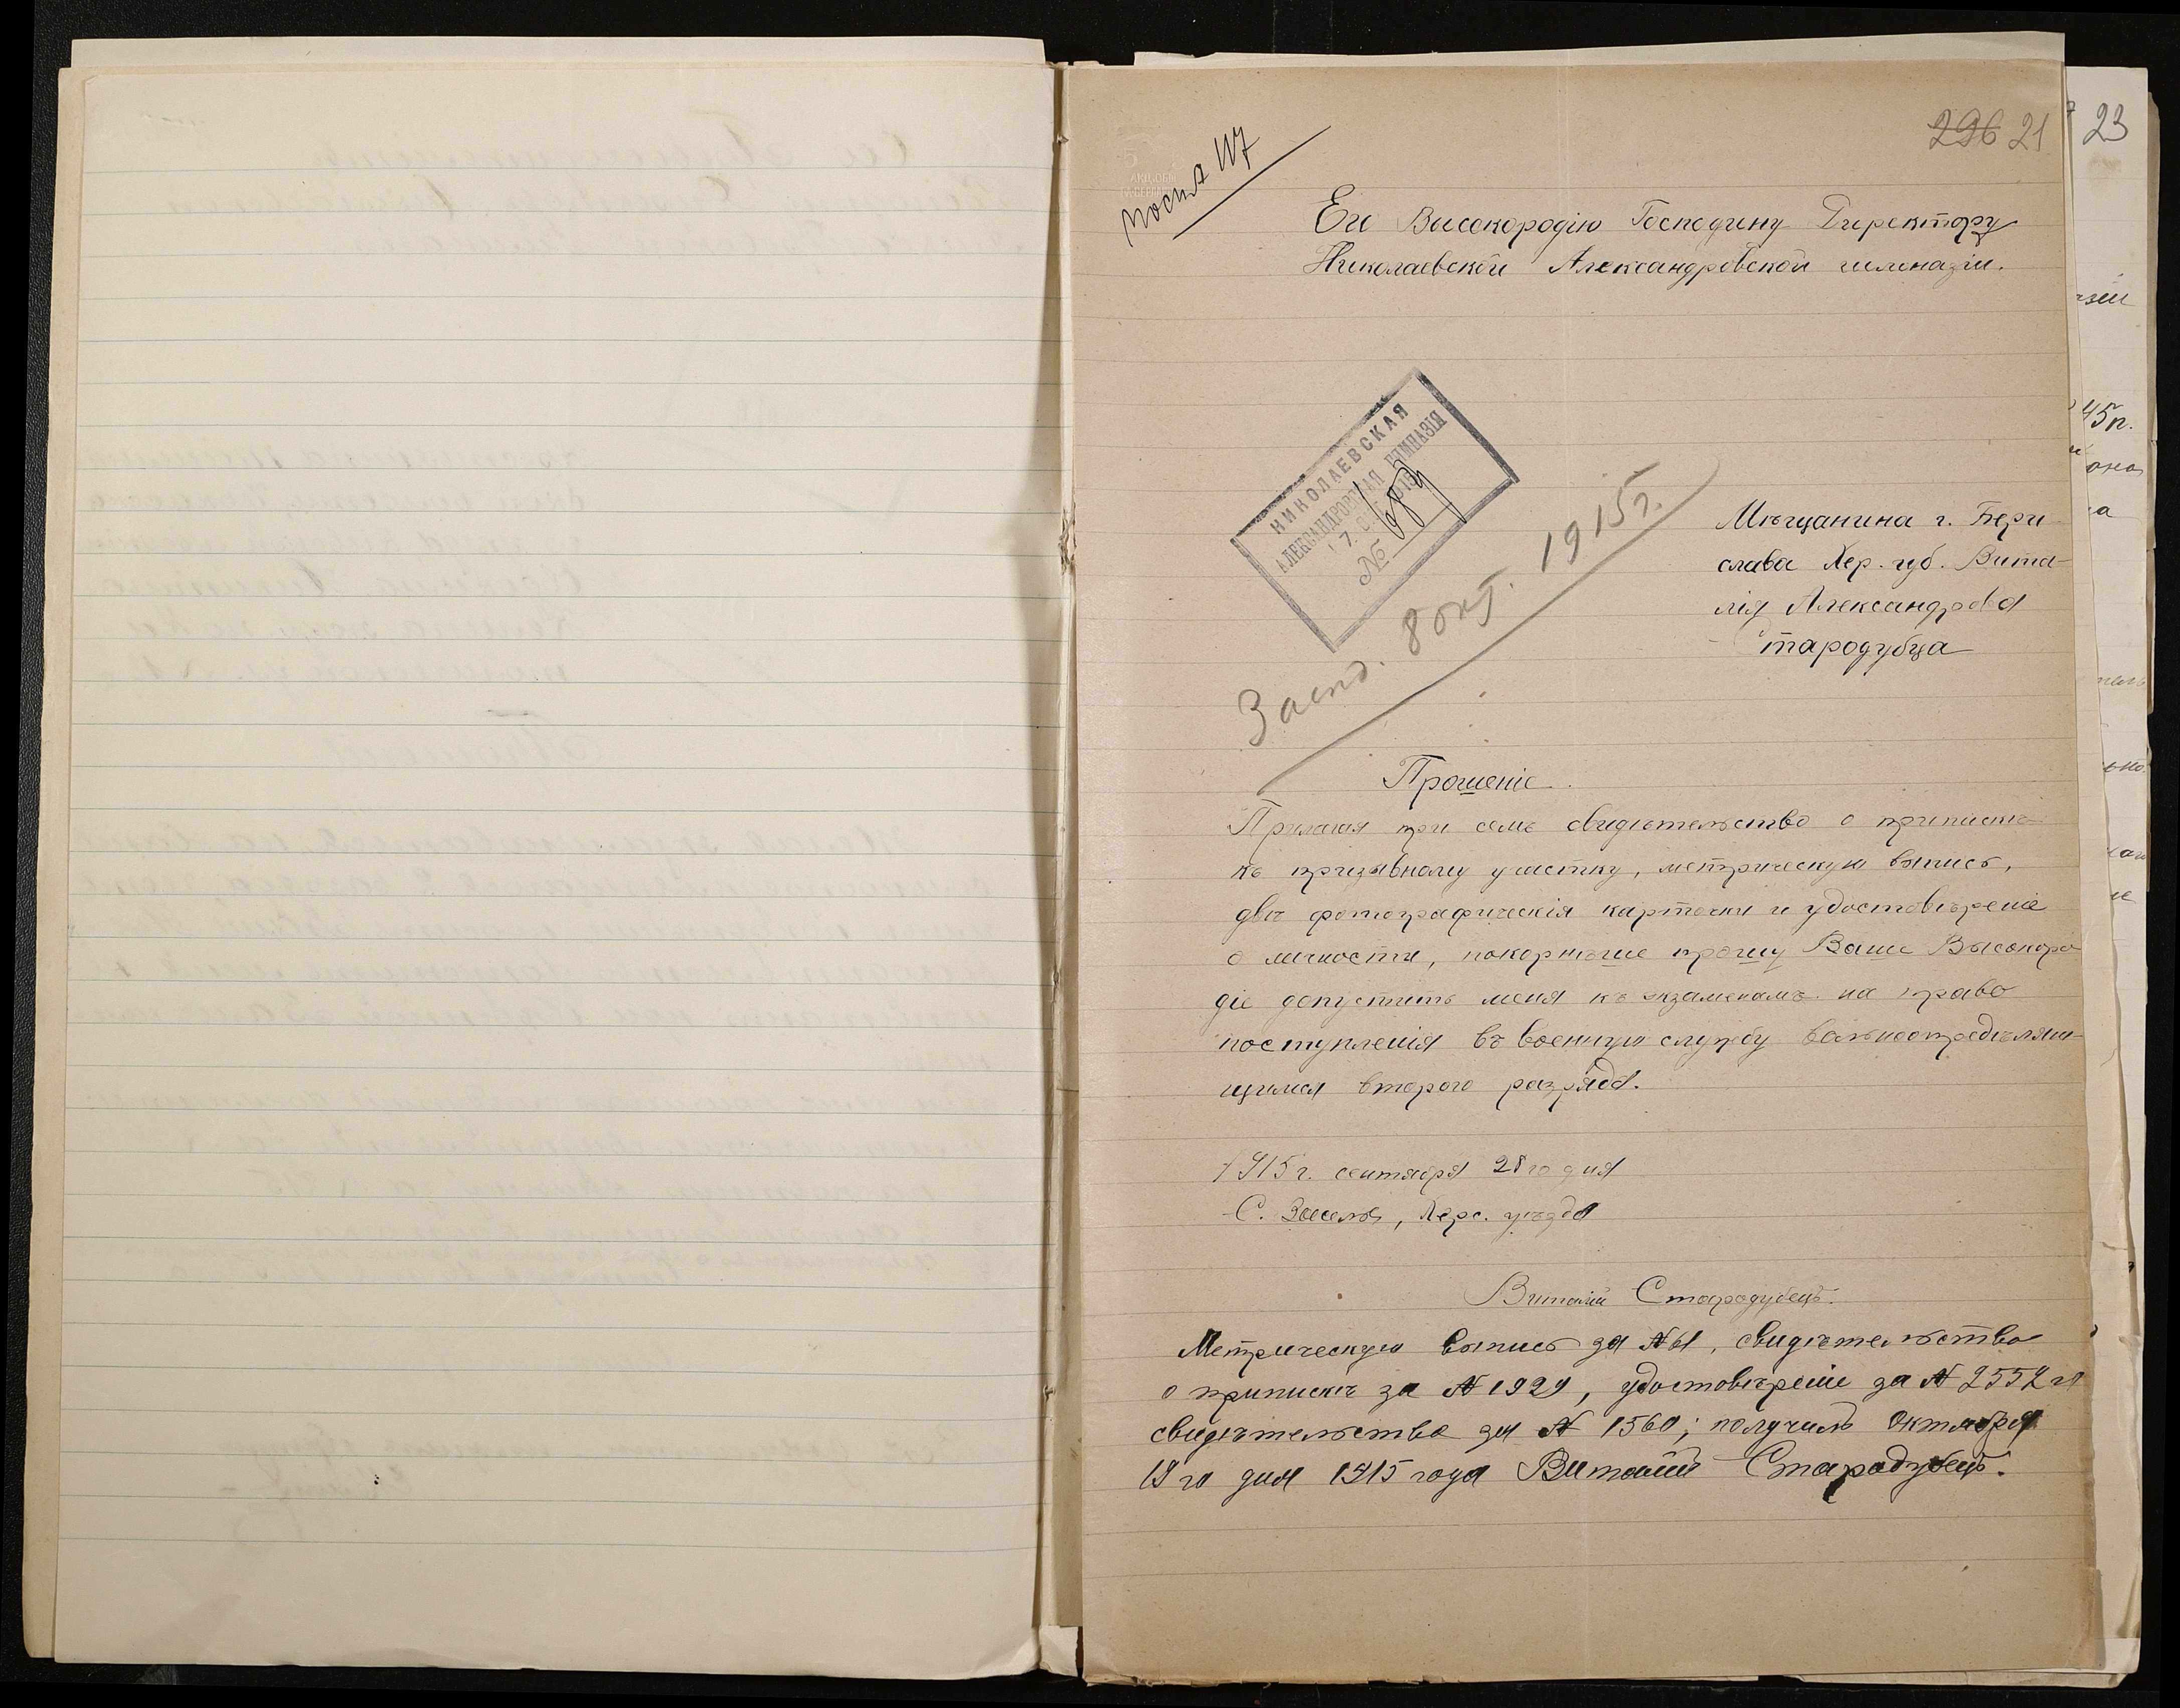 296 21
23
Его Высокородію Господину Директору
Николаевской Александровской гимназіи.
НИКОЛАЕВСКАЯ
АЛЕКСАНДРОВСКАЯ ГИМНАЗІЯ
№
Мѣщанина г. Бери
слава Хер. губ. Вита-
лія Александрова
Стародубца
8 окт. 1915 г.
Прошеніе.
Прилагая при семъ свидѣтельство о припискѣ
къ призывному участку, метрическую выпись,
двѣ фотографическія карточки и удостовѣреніе
о личности, покорнѣше прошу Ваше Высокоро
діе допустить меня къ экзаменамъ на право
поступленія въ военную службу вольноопредѣляю-
щимся второго разряда.
1915 г. сентября 28 го дня
С. Засельє, Херс. уѣзда
Виталій Стародубецъ.
Метрическую выпись за №61, свидѣтельство
о припискѣ за № 1929, удостовѣреніе за № 2552 и
свидѣтельство за № 1560; получилъ Октября
19 го дня 1915 года Виталій Стародубецъ.